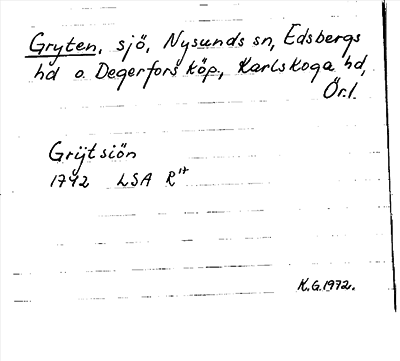 Gryten, sjö, Nysunds sn, Edsbergs
hd o. Degerfors köp, Karlskoga hd,
Ör.l.
Grijtsiön
1742 LSA R17
K.G.1972.